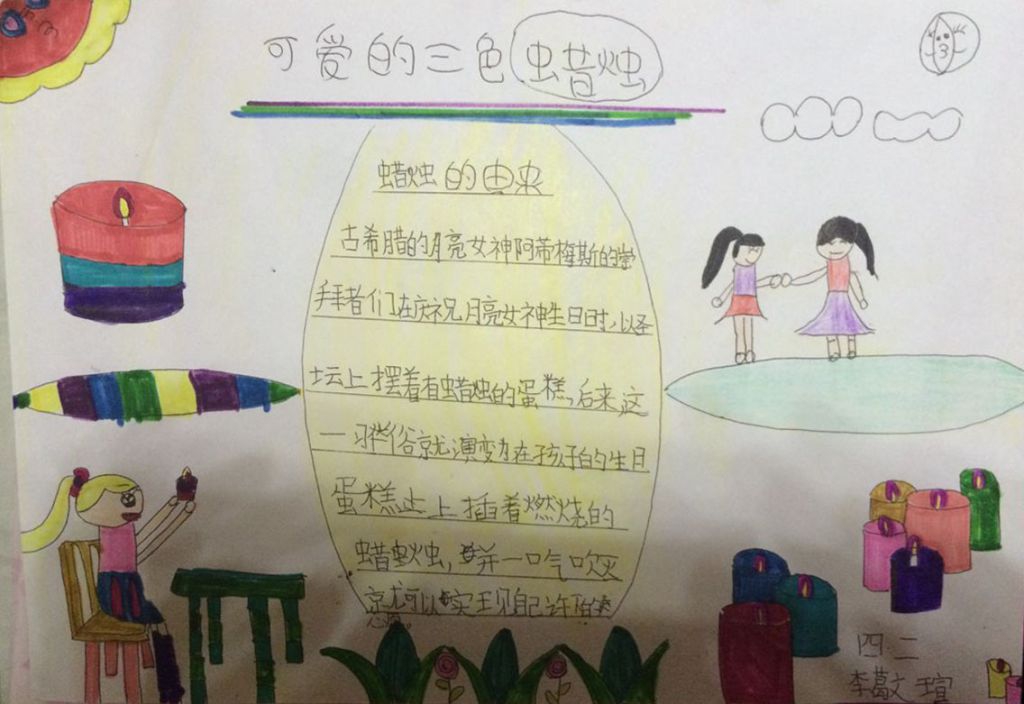 可爱的三色蜡烛
蜡烛的由来
古希腊的月亮女神阿蒂梅斯的崇
拜者们在庆祝月亮女神生日时,以圣
坛上摆着有蜡烛的蛋糕,后来这
一习俗就演变为在孩子的生日
蛋糕上插着燃烧的
蜡烛,并一口气吹灭
就可以实现自己许的
愿。
四.二
李葛文瑄